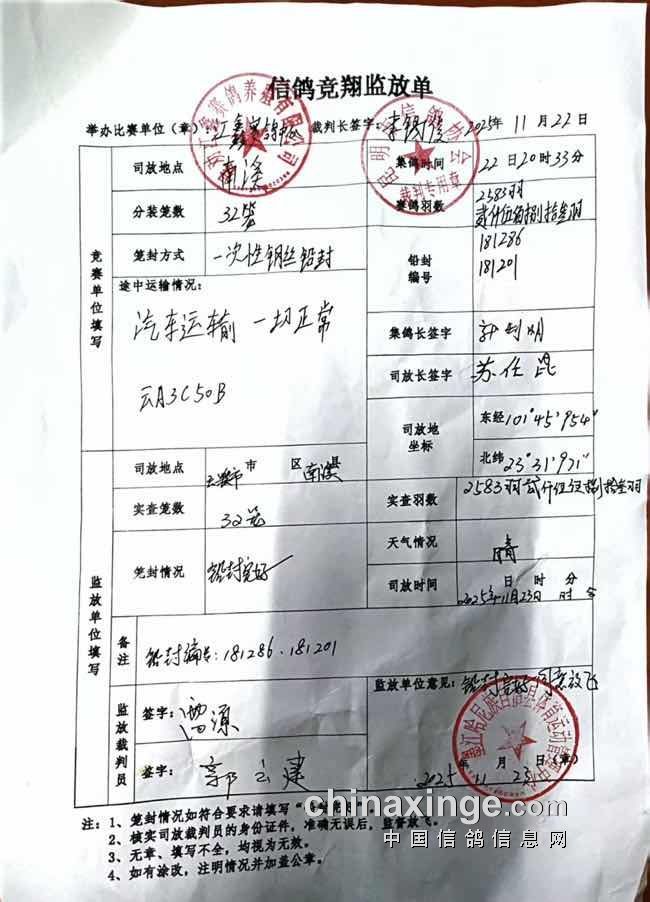 信鸽竞翔监放单
举办比赛单位（章）： 裁判长签字： 2025年 11月22日
竞赛单位填写
司放地点 南溪 集鸽时间 22日20时33分
分装笼数 32笼 赛鸽羽数 2583羽
笼封方式 一次性钢丝铅封 铅封编号 181286
181201
途中运输情况：
汽车运输 一切正常
云A3C50B
集鸽长签字
司放长签字 苏仕昆
司放地坐标 东经 101°45'954"
北纬 23°31'971"
监放单位填写
司放地点 市 区 县
实查笼数 32笼 实查羽数 2583羽
笼封情况 铅封完好 天气情况 晴
司放时间 日 时 分
2025年11月23日 时 分
备注 铅封编号：181286、181201
监放裁判员 签字：
签字： 郭云建
监放单位意见： 铅封完好 同意放飞
年 月 日（章）
2025 11 23
注：1、笼封情况如符合要求请填写
2、核实司放裁判员的身份证件，准确无误后，监督放飞。
3、无章、填写不全，均视为无效。
4、如有涂改，注明情况并加盖公章。
裁判专用章
chinaxinge.com
中国信鸽信息网